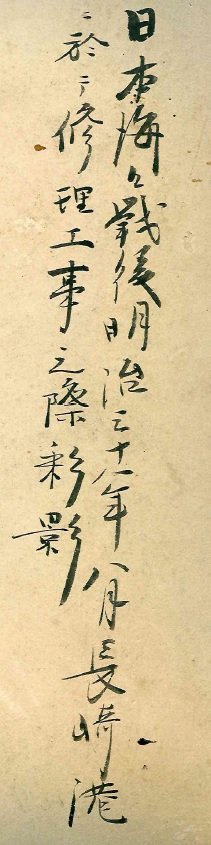 日本海々戰後明治三十八年八月長崎港
ニ於テ修理工事之際彩影